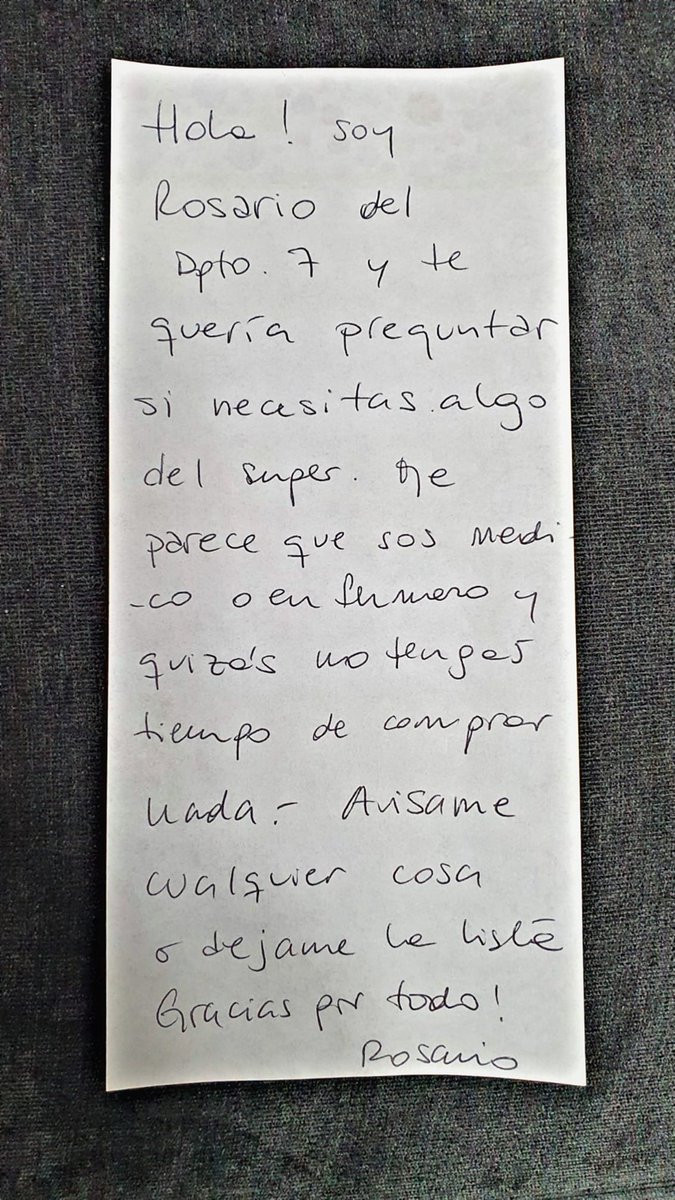 Hola! soy
Rosario del
Dpto. 7 y te
quería preguntar
si necesitas algo
del super. Me
parece que sos medi-
-co o enfermero y
quizás no tengas
tiempo de comprar
nada.- Avisame
cualquier cosa
o dejame la lista
Gracias por todo!
Rosario